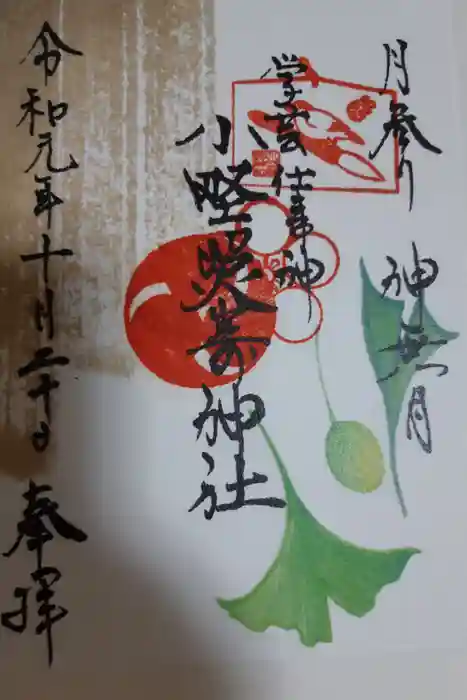 月参り
神無月
学芸仕事神
小野照崎神社
令和元年十月二十日
奉拝